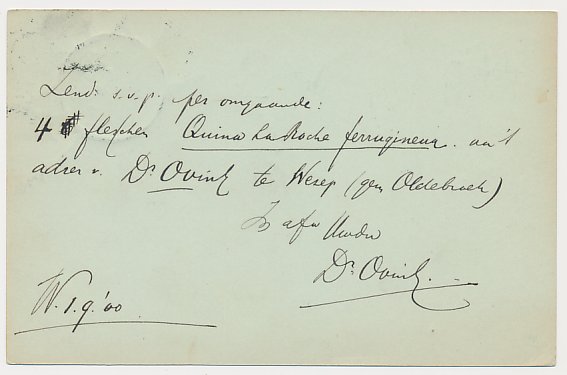 Zend s.v.p. per omgaande:
4 flesschen Quina La Roche ferrugineux aan 't
adres v. Dr. Ovink te Wezep (gem Oldebroek)
Dr. Ovink.
W. 1.9.'00